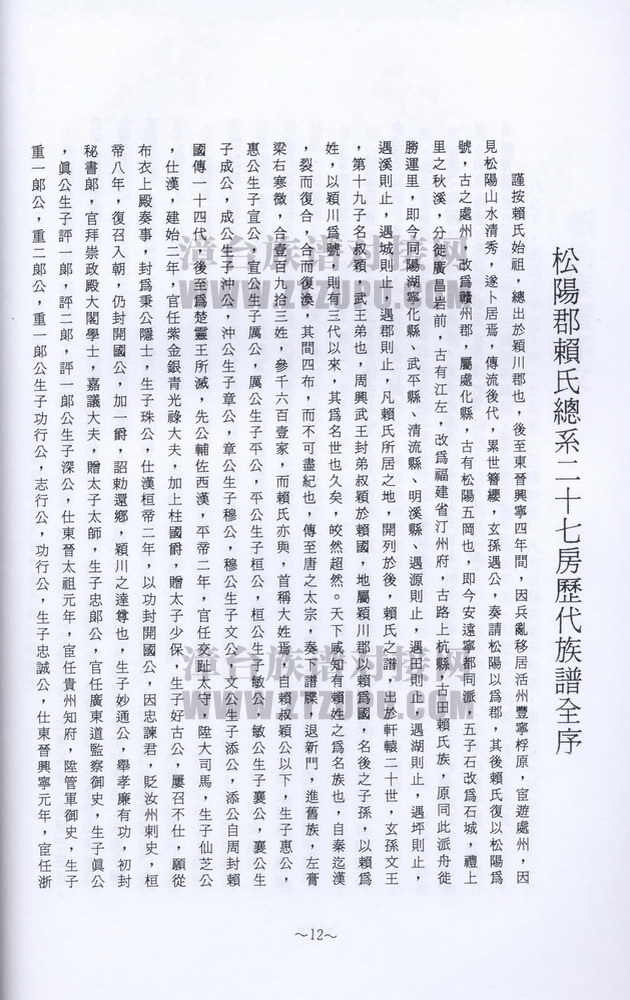 松陽郡賴氏總系二十七房歷代族譜全序
謹按賴氏始祖，總出於潁川郡也，後至東晉興寧四年間，因兵亂移居活州豐寧桴原，宦遊處州，因
見松陽山水清秀，遂卜居焉，傳流後代，累世簪纓，玄孫遇公，奏請松陽以爲郡，其後賴氏復以松陽爲
號，古之處州，改爲贛州郡，屬處化縣，古有松陽五岡也，即今安遠寧都同派，五子石改爲石城，禮上
里之秋溪，分徙廣昌岩前，古有江左，改爲福建省汀州府，古路上杭縣，古田賴氏族，原同此派舟徙
勝運里，即今同陽湖寧化縣、武平縣、清流縣、明溪縣、遇源則止，遇田則止，遇湖則止，遇坪則止，
遇溪則止，遇城則止，遇郡則止，凡賴氏所居之地，開列於後，賴氏之譜，出於軒轅二十世，玄孫文王
，第十九子名叔穎，武王弟也，周興武王封弟叔穎於賴國，地屬潁川郡以賴爲國，名後之子孫，以賴爲
姓，以穎川爲號，則有三代以來，其爲名世也久矣，皎然超然。天下咸知有賴姓之爲名族也，自秦迄漢
，裂而復合，合而復渙，其間四布，而不可盡紀也，傳至唐之太宗，奏定譜諜，退新門，進舊族，左膏
梁右寒微，合壹百九拾三姓，參千六百壹家，而賴氏亦與，首稱大姓焉，自賴叔穎公以下，生子惠公，
惠公生子宣公，宣公生子厲公，厲公生子平公，平公生子桓公，桓公生子敏公，敏公生子襄公，襄公生
子成公，成公生子沖公，沖公生子章公，章公生子穆公，穆公生子文公，文公生子添公，添公自周封賴
國傳一十四代，後至爲楚靈王所滅，先公輔佐西漢，平帝二年，官任交趾太守，陞大司馬，生子仙芝公
，仕漢，建始二年，官任紫金銀青光祿大夫，加上柱國爵，贈太子少保，生子好古公，屢召不仕，願從
布衣上殿奏事，封爲秉公隱士，生子珠公，仕漢桓帝二年，以功封開國公，因忠諫君，貶汝州刺史，桓
帝八年，復召入朝，仍封開國公，加一爵，詔勅還鄉，穎川之達尊也，生子妙通公，舉孝廉有功，初封
秘書郎，官拜崇政殿大閣學士，嘉議大夫，贈太子太師，生子忠郎公，官任廣東道監察御史，生子眞公
，眞公生子評一郎，評二郎，評一郎公生子深公，仕東晉太祖元年，宦任貴州知府，陞管軍御史，生子
重一郎公，重二郎公，重一郎公生子功行公，志行公，功行公，生子忠誠公，仕東晉興寧元年，宦任浙
～12～
漳台族谱对接网
WWW.ZTZUPU.COM
漳台族谱对接网
WWW.ZTZUPU.COM